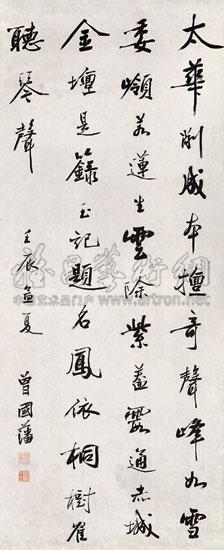 太華削成本擅奇聲峰如雪
委嶺若蓮生雲除紫蓋霞通赤城
金壇是籙玉記題名鳳依桐樹雀
聽琴聲
壬辰孟夏 曾國藩
www.artron.net